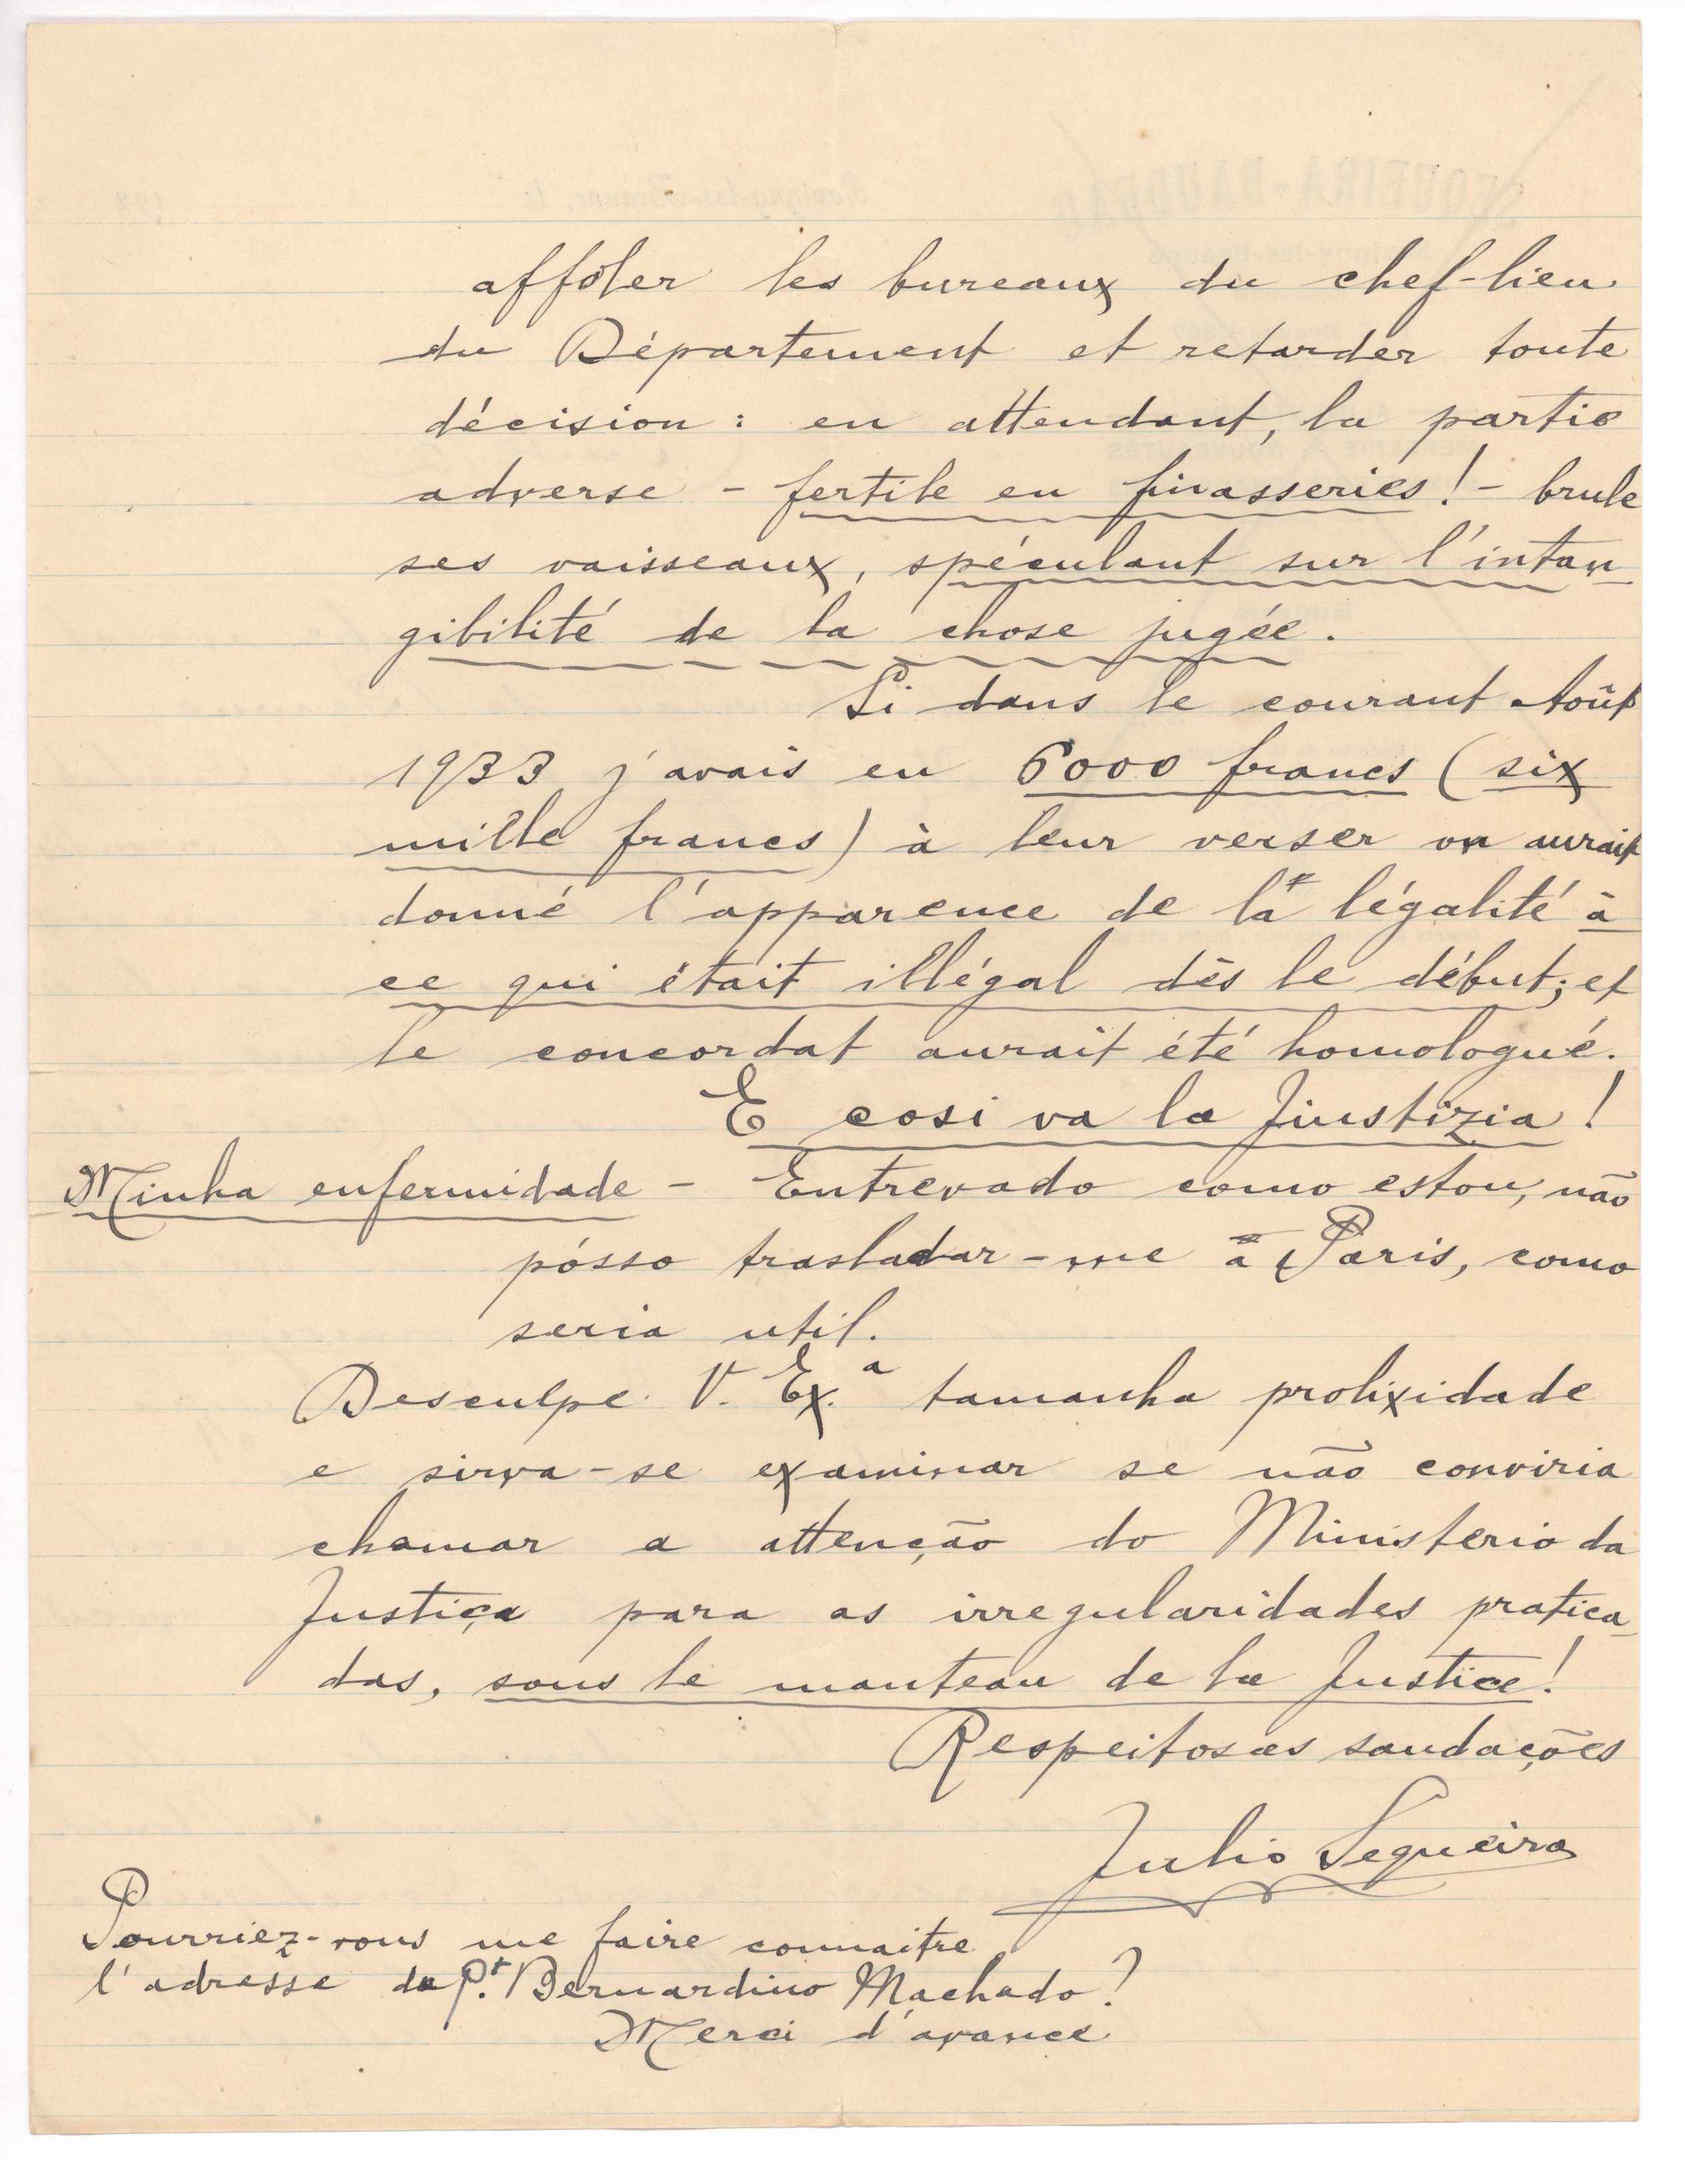 affoler les bureaux du chef-lieu
du Département et retarder toute
décision : en attendant, la partie
adverse - fertile en finasseries ! - brule
ses vaisseaux, spéculant sur l'intan
gibilité de la chose jugée.
Si dans le courant Août
1933 j'avais eu 6000 francs (six
mille francs) à leur verser on aurait
donné l'apparence de la légalité à
ce qui était illégal dès le début; et
le concordat aurait été homologué.
E cosi va la Jiustizia !
Minha enfermidade - Entrevado como estou, não
pósso trasladar-me a Paris, como
seria util.
Desculpe V. Ex.ª tamanha prolixidade
e sirva-se examinar se não conviria
chamar a attenção do Ministerio da
Justiça para as irregularidades pratica
das, sous le manteau de la Justice !
Respeitosas saudações
Julio Sequeira
Pourriez-vous me faire connaitre
l'adresse du P.t Bernardino Machado ?
Merci d'avance